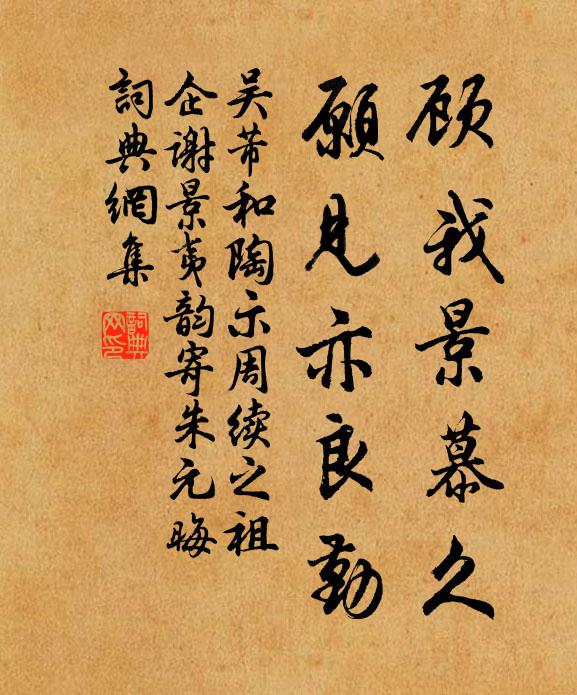 顾我景慕久
願見亦良勤
吴芾和陶示周续之祖
企谢景夷韵寄朱元晦
詞典網集
詞典
网印